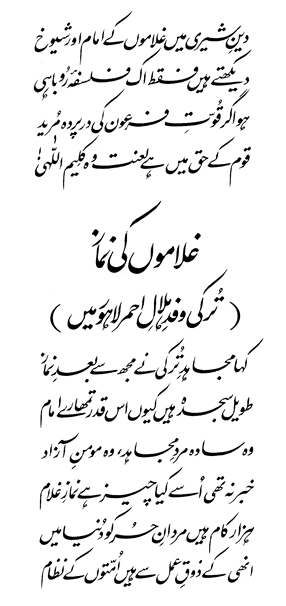 دینِ شیری میں غلاموں کے امام اور شیوخ
دیکھتے ہیں فقط اک فلسفۂ روباہی
ہو اگر قوّتِ فرعون کی در پردہ مُرید
قوم کے حق میں ہے لعنت وہ کلیم اللّٰہی
غلاموں کی نماز
( تُرکی وفدِ ہلالِ احمر لاہور میں )
کہا مجاہدِ تُرکی نے مجھ سے بعدِ نماز
طویل سجدہ ہیں کیوں اس قدر تمھارے امام
وہ سادہ مردِ مجاہد، وہ مومنِ آزاد
خبر نہ تھی اُسے کیا چیز ہے نمازِ غلام
ہزار کام ہیں مردانِ حُر کو دُنیا میں
انھی کے ذوقِ عمل سے ہیں اُمّتوں کے نظام